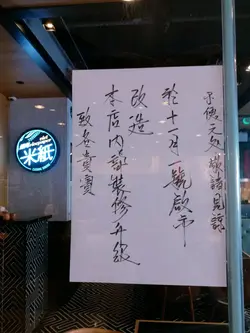 米紙
致各貴賓
本店內部裝修升級
改造
於十一月一號啟市
請見諒